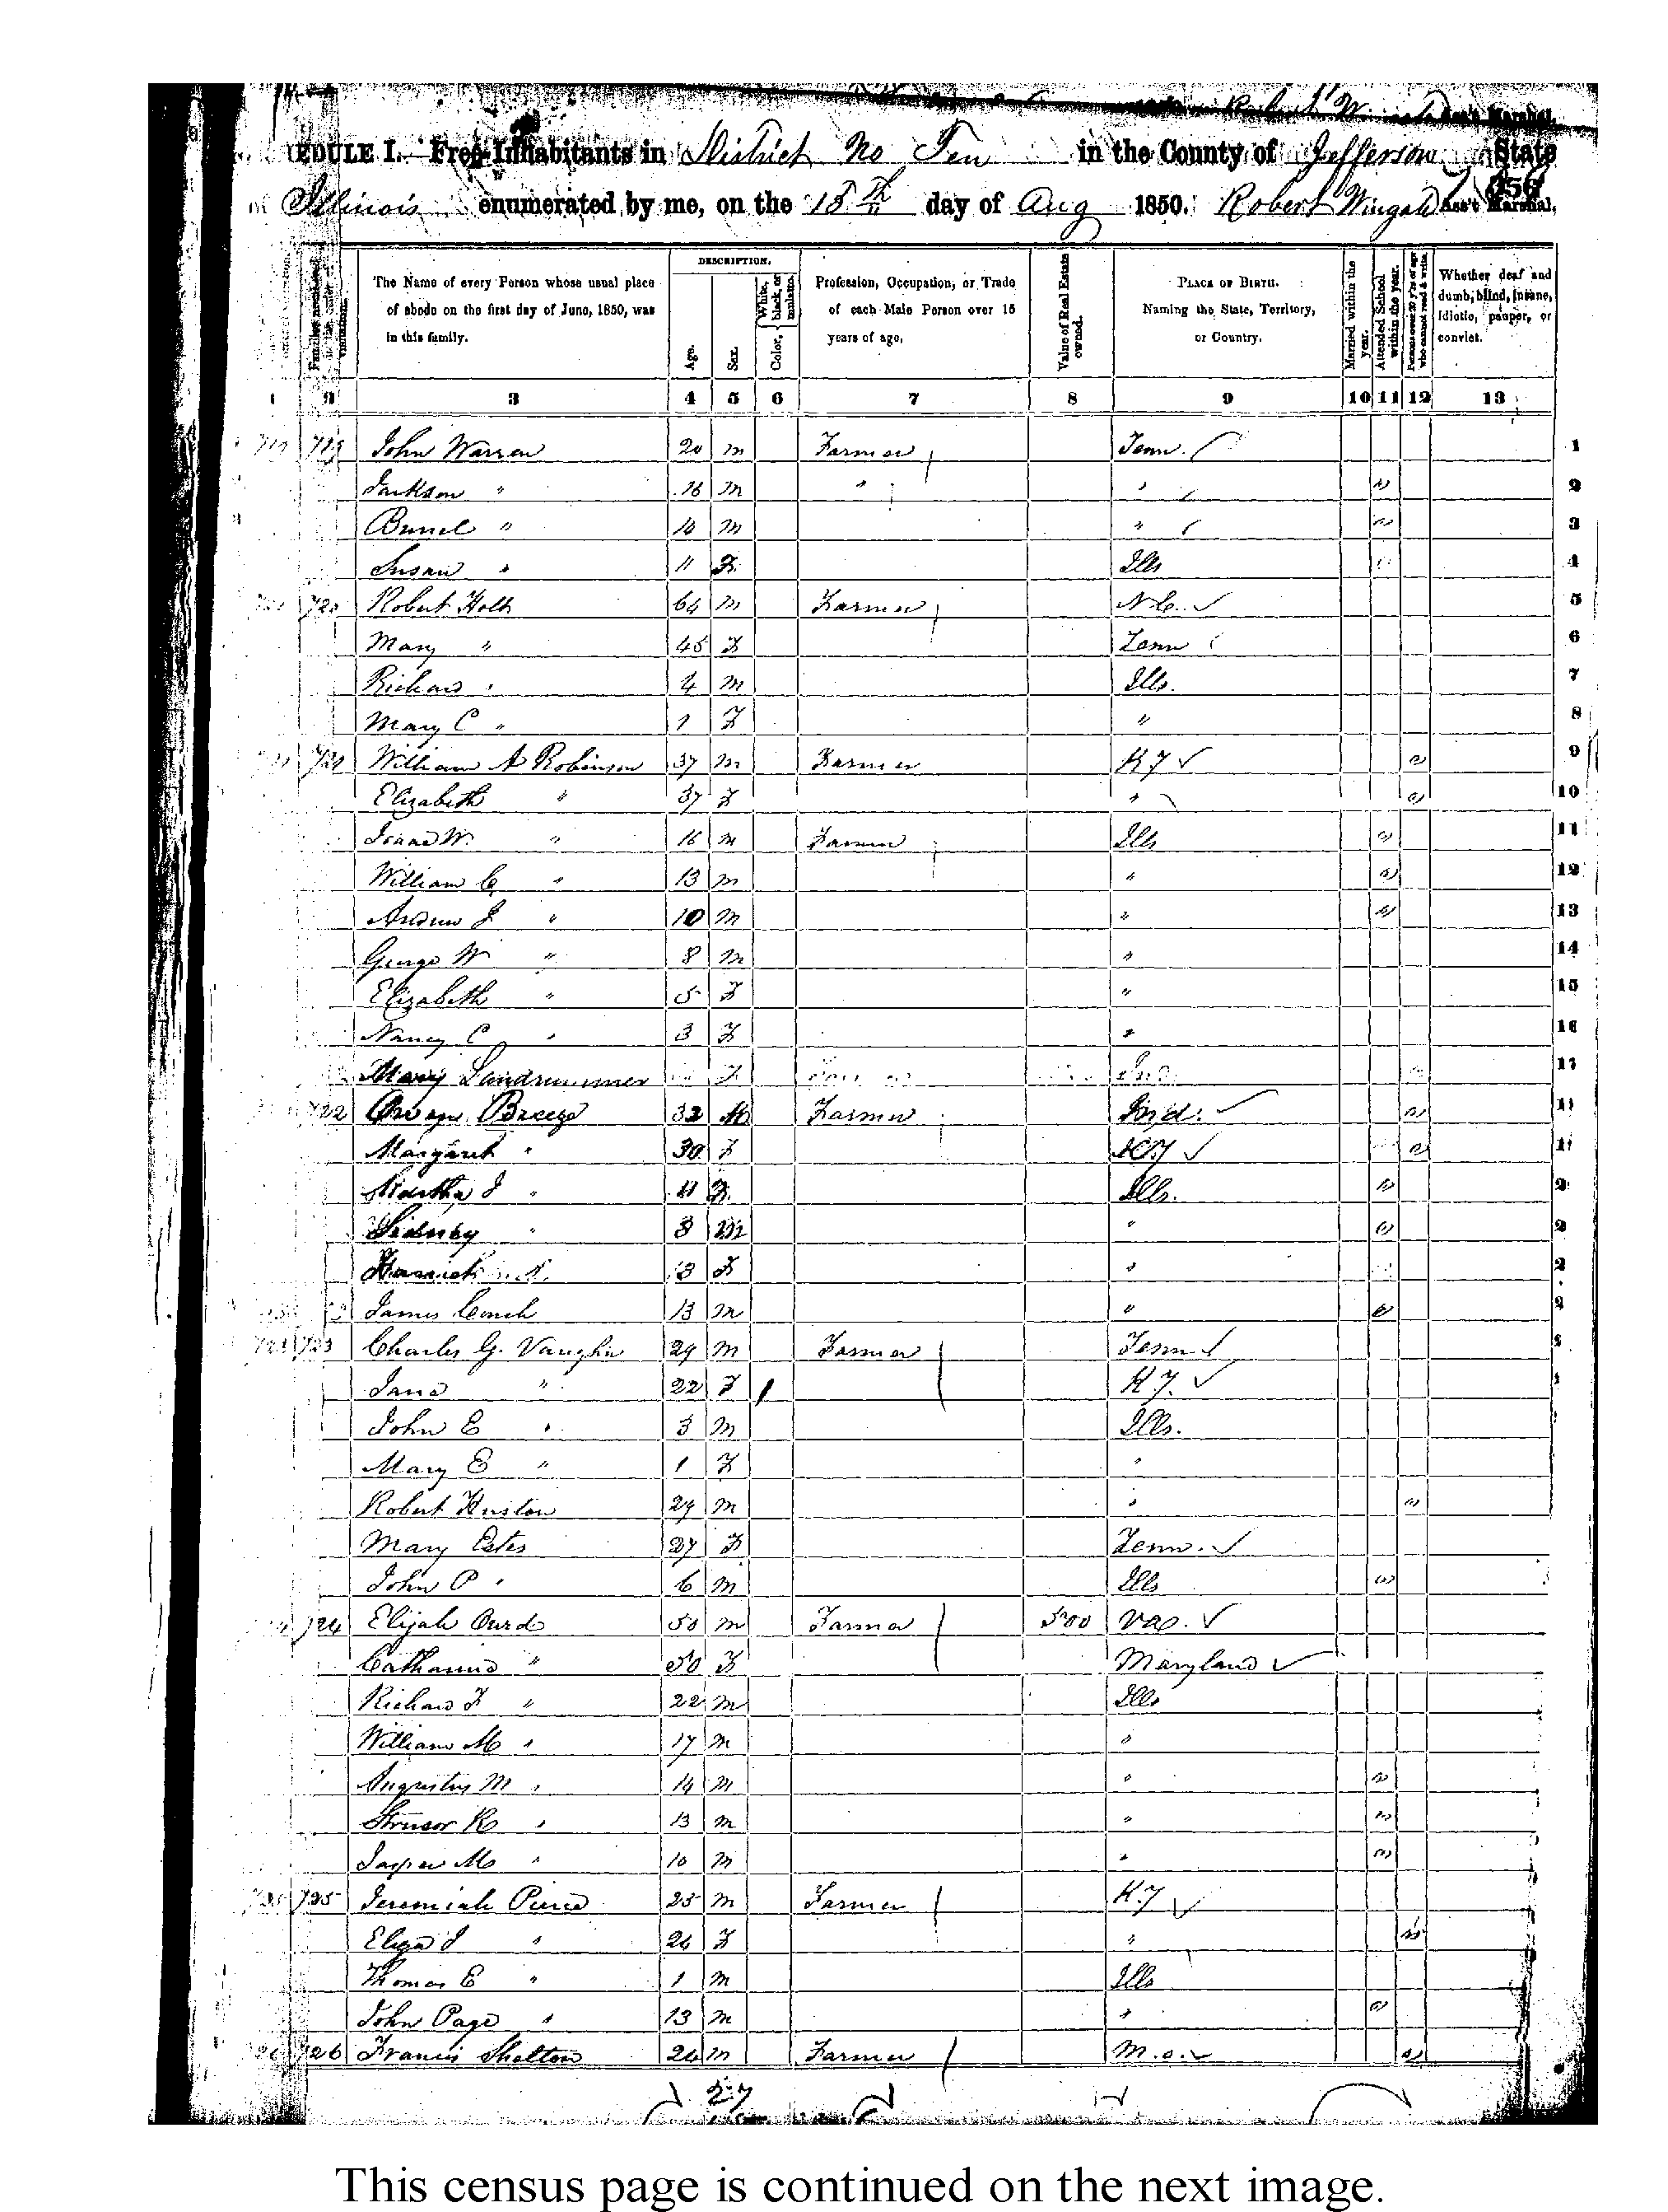 EDULE I. Free Inhabitants in District No Ten in the County of Jefferson State
Illinois enumerated by me, on the 18th day of Aug 1850. Robert Wingate Ass't Marshal.
356
DESCRIPTION.
The Name of every Person whose usual place of abode on the first day of June, 1850, was in this family.
Age.
Sex.
Color, White, black, or mulatto.
Profession, Occupation, or Trade of each Male Person over 15 years of age.
Value of Real Estate owned.
PLACE OF BIRTH. Naming the State, Territory, or Country.
Married within the year.
Attended School within the year.
Persons over 20 y'rs of age who cannot read & write.
Whether deaf and dumb, blind, insane, idiotic, pauper, or convict.
1 2 3 4 5 6 7 8 9 10 11 12 13
John Warren 20 m Farmer Tenn. 1
Jackson " 16 m " " 2
" m " 3
Susan " 11 F Ills 4
720 Robert Holt 64 m Farmer N C. 5
Mary " 45 F Tenn 6
Richard " 4 m Ills. 7
Mary C " 1 F " 8
William A Robinson 37 m Farmer K Y 9
Elizabeth " 37 F " 10
Isaac W. " 16 m Farmer Ills 11
William C " 13 m " 12
Andrew J " 10 m " 13
George W " 8 m " 14
Elizabeth " 5 F " 15
Nancy C " 3 F " 16
Mary F 17
722 Breeze 32 M Farmer Ind.
Margaret " 30 F K.Y
Martha J " 11 F Ills.
Sidney " 8 m "
3 F "
James 13 m "
723 723 Charles G. Vaughn 29 m Farmer Tenn
Jane " 22 F K Y.
John E " 3 m Ills.
Mary E " 1 F "
Robert Huston 29 m "
Mary Estes 27 F Tenn.
John P " 6 m Ills
724 Elijah 50 m Farmer 500 Va.
Catharine " 50 F Maryland
Richard F " 22 m Ills
William M " 17 m "
Augustus M " 14 m "
R " 13 m "
Jasper M " 10 m "
725 725 Jeremiah Pierce 25 m Farmer K.Y
Eliza J " 24 F "
Thomas E " 1 m Ills
John Page " 13 m "
726 Francis Shelton 24 m Farmer M.o.
27
This census page is continued on the next image.